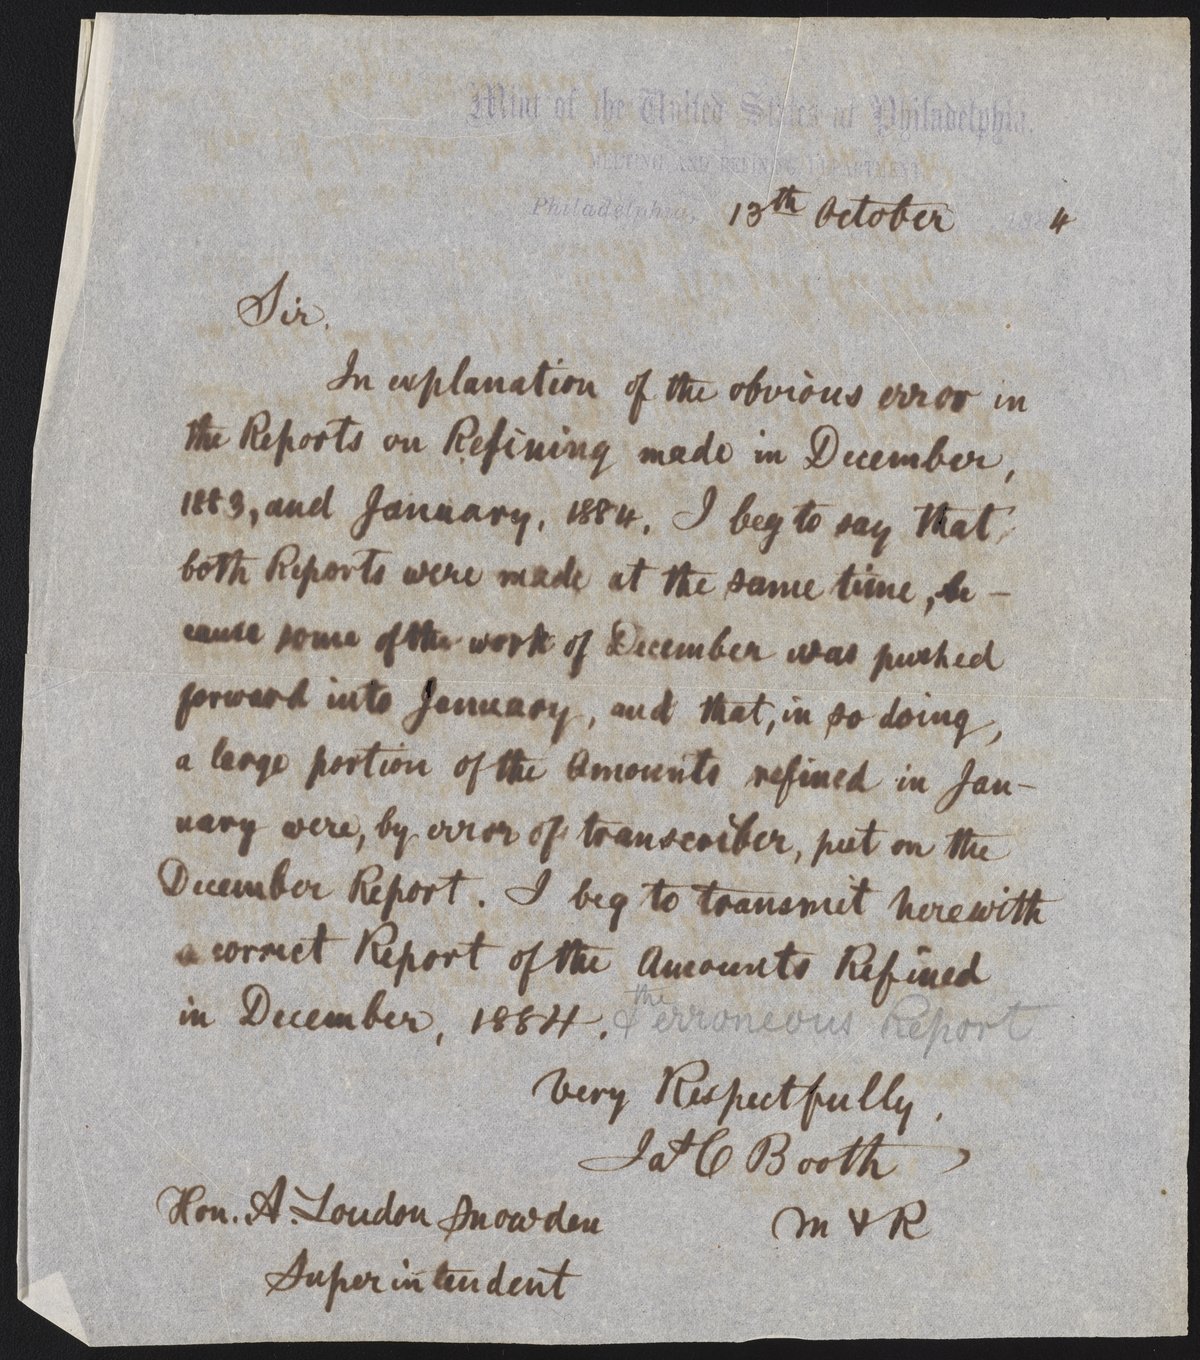 Mint of the United States at Philadelphia.
MELTING AND REFINING DEPARTMENT
Philadelphia, 13th October 1884
Sir.
In explanation of the obvious error in
the Reports on Refining made in December,
1883, and January, 1884, I beg to say that
both Reports were made at the same time, be-
cause some of the work of December was pushed
forward into January, and that, in so doing,
a large portion of the Amounts refined in Jan-
uary were, by error of transcriber, put on the
December Report. I beg to transmit herewith
a correct Report of the Amounts Refined
in December, 1884. & the erroneous Report
Very Respectfully,
Jas C Booth
Hon. A. Loudon Snowden
M & R
Superintendent